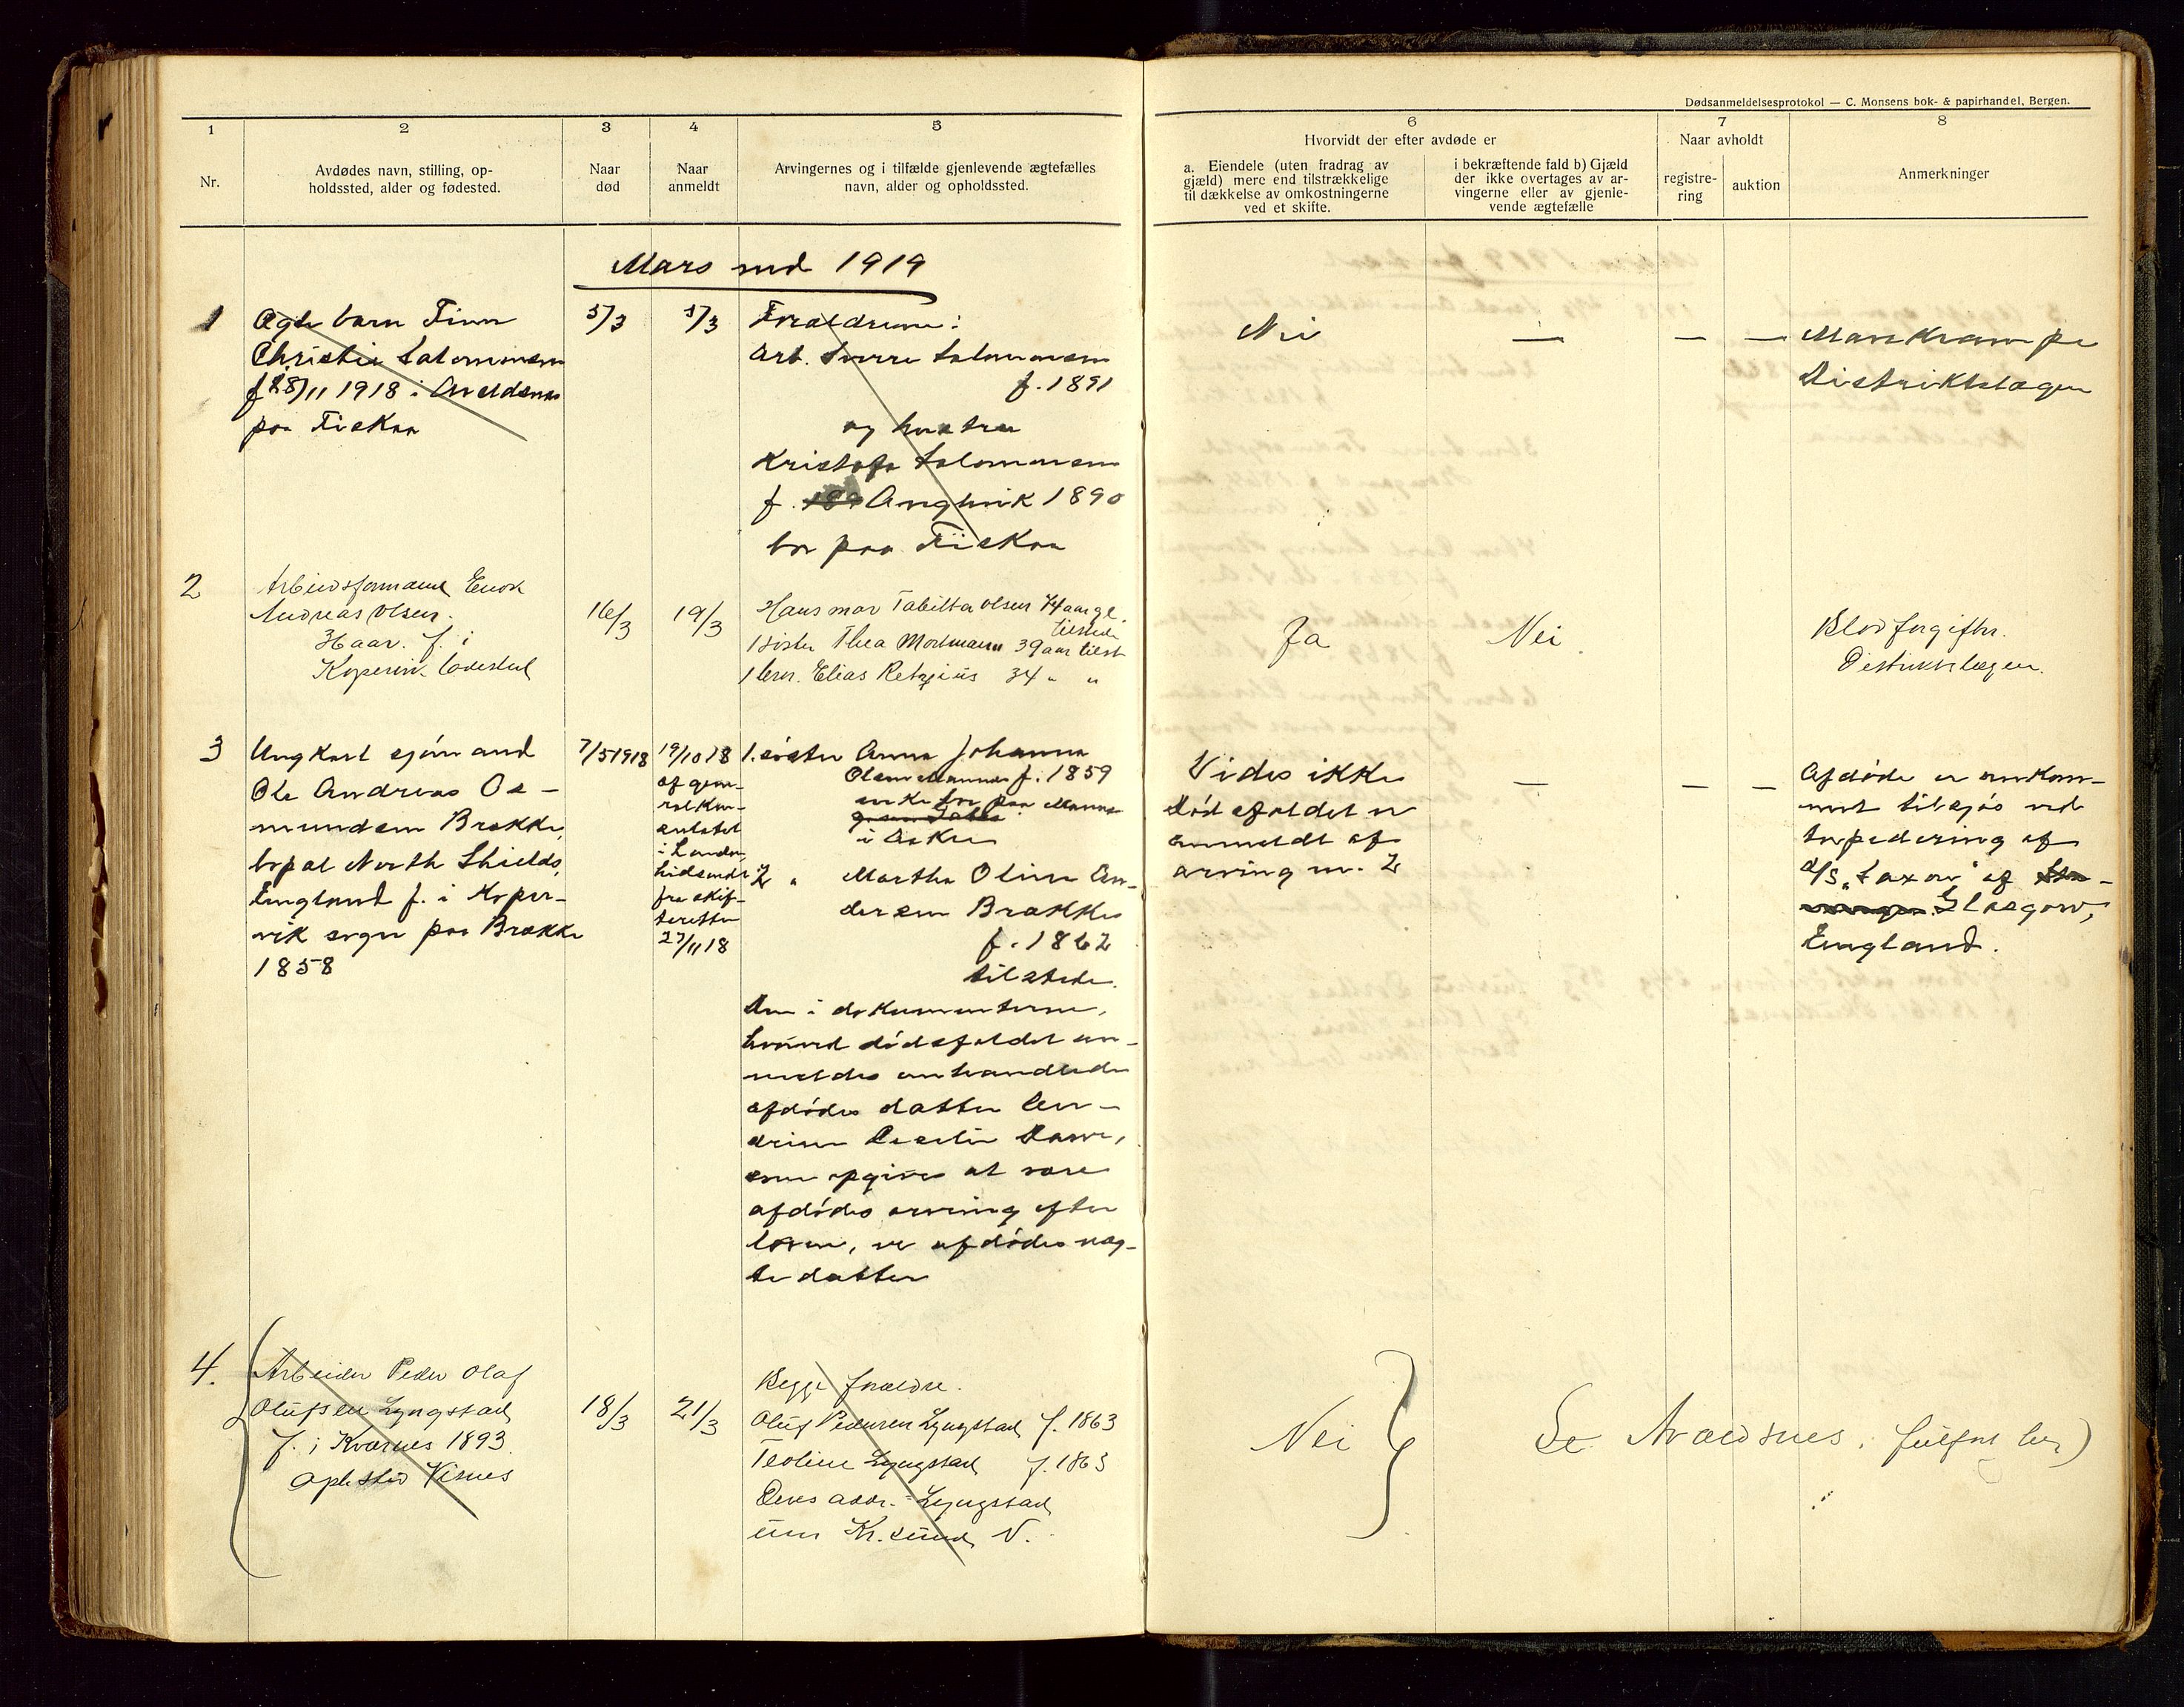 Dødsanmeldelsesprotokol — C. Monsens bok- & papirhandel, Bergen.
1
2
3
4
5
6
7
8
Nr.
Avdødes navn, stilling, op-
holdssted, alder og fødested.
Naar
død
Naar
anmeldt
Arvingernes og i tilfælde gjenlevende ægtefælles
navn, alder og opholdssted.
Hvorvidt der efter avdøde er
a. Eiendele (uten fradrag av
gjæld) mere end tilstrækkelige
til dækkelse av omkostningerne
ved et skifte.
i bekræftende fald b) Gjæld
der ikke overtages av ar-
vingerne eller av gjenle-
vende ægtefælle
Naar avholdt
registre-
ring
auktion
Anmerkninger
Mars md 1919
1
Ægte barn Finn
Christie Salomonsen
f 28/11 1918 i Avaldsnes
paa Fiskaa
5/3
5/3
Forældrene:
Arb. Sverre Salomonsen
f. 1891
og hustru
Kristofa Salomonsen
f. Angvik 1890
bor paa Fiskaa
Nei
—
—
—
Mavekrampe
Distriktslægen
2
Arbeidsformand Enok
Andreas Olsen.
f. i
Kopervik ladested
16/3
19/3
Hans mor Tabitta Olsen 74 aar gl.
tilstede
1 søster Thea Mortmann 39 aar tilst
1 bror. Elias Retzius 34 " "
Ja
Nei
Blodforgiftn.
Distriktslægen.
3
Ungkarl sjømand
Ole Andreas Os-
mundsen Brække,
bopæl North Shields,
England f. i Koper-
vik sogn paa Brække
1858
7/5 1918
19/10 18
af gene-
ralkon-
sulatet
i London
hidsendt
fra skif-
teretten
27/11 18
1. søster Anna Johanna
Olsen Mannes f. 1859
enke bor paa Mannes
i Aakre
2 " Martha Oline An-
dersen Brække
f. 1862
tilstede.
Den i dokumenterne,
hvorved dødsfaldet an-
meldes omhandlede
afdødes datter An-
drine Cecelie Dawe,
som opgives at være
afdødes arving efter
loven, er afdødes uæg-
te datter
Vides ikke
Dødsfaldet er
anmeldt af
arving nr. 2
—
—
—
Afdøde er omkom-
met tilsjøs ved
torpedering af
d/s "Saxon" af
Glasgow,
England.
4.
Arbeider Peder Olaf
Olufsen Lyngstad
f. i Kværnes 1893.
opholdssted Visnes
18/3
21/3
Begge forældre.
Oluf Pedersen Lyngstad f. 1863
Teoline Lyngstad f. 1863
Deres addr. Lyngstad
Kr.sund N.
Nei
Se Avaldsnes.